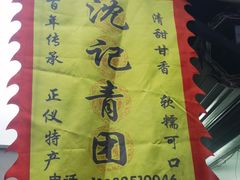 百年传承
正仪特产
沈记青团
清甜甘香
软糯可口